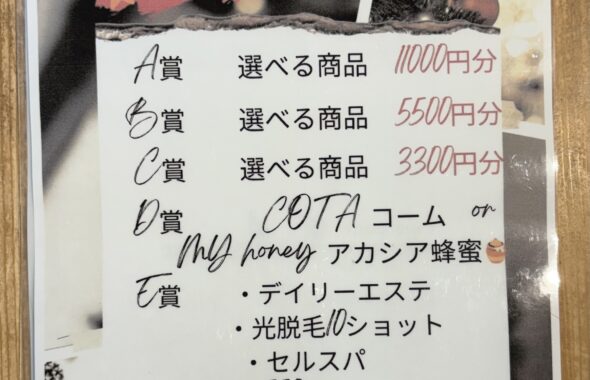 A賞 選べる商品 11000円分
B賞 選べる商品 5500円分
C賞 選べる商品 3300円分
D賞 COTA コーム or
My honey アカシア蜂蜜
E賞 ・デイリーエステ
・光脱毛10ショット
・セルスパ